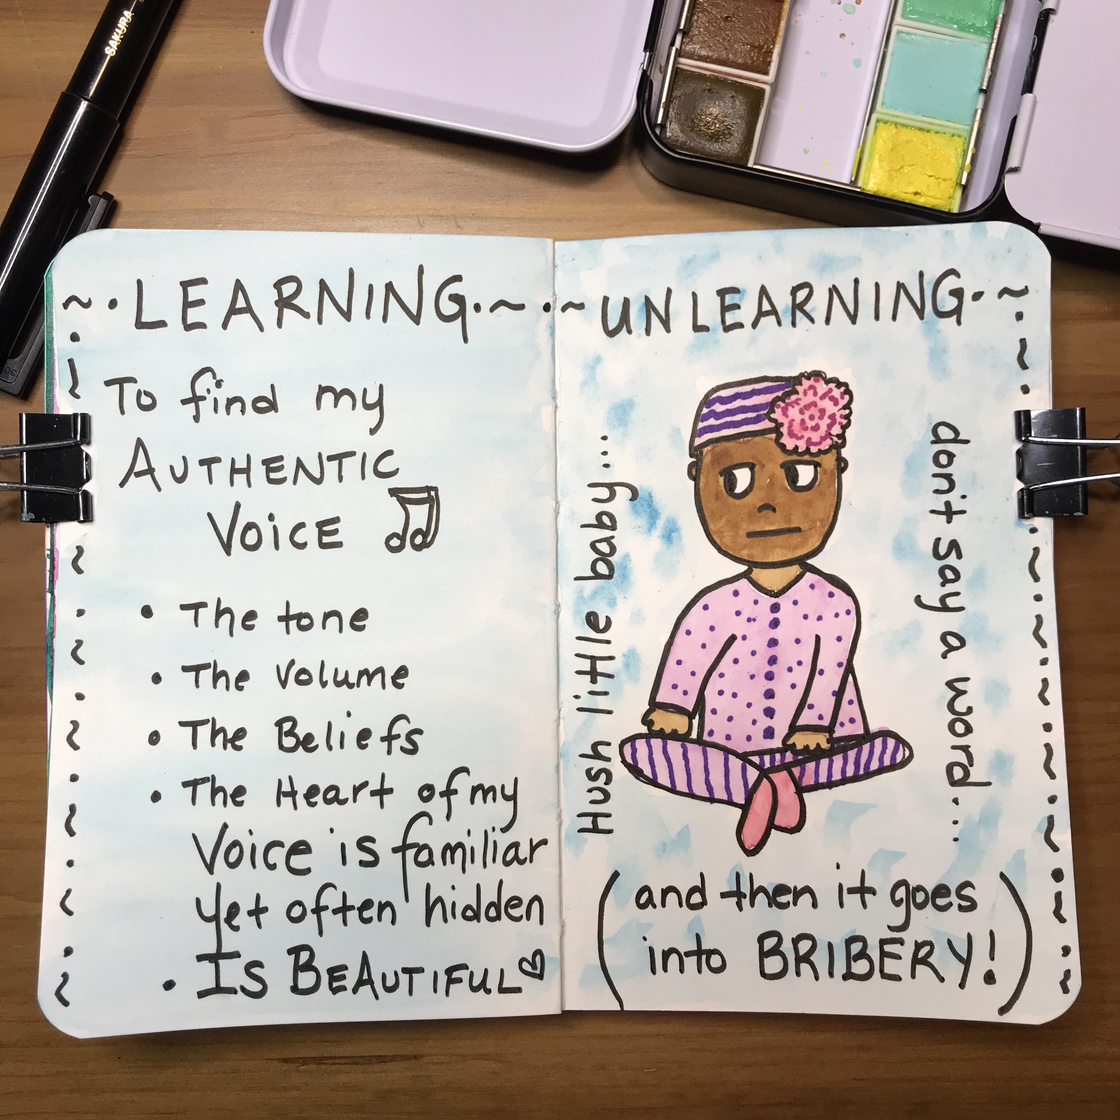 SAKURA
~·LEARNING·~·
To find my
AUTHENTIC
VOICE
• The tone
• The Volume
• The Beliefs
• The Heart of my
Voice is familiar
yet often hidden
• IS BEAUTIFUL♡
~UNLEARNING·~
Hush little baby...
don't say a word....
(and then it goes
into BRIBERY!)